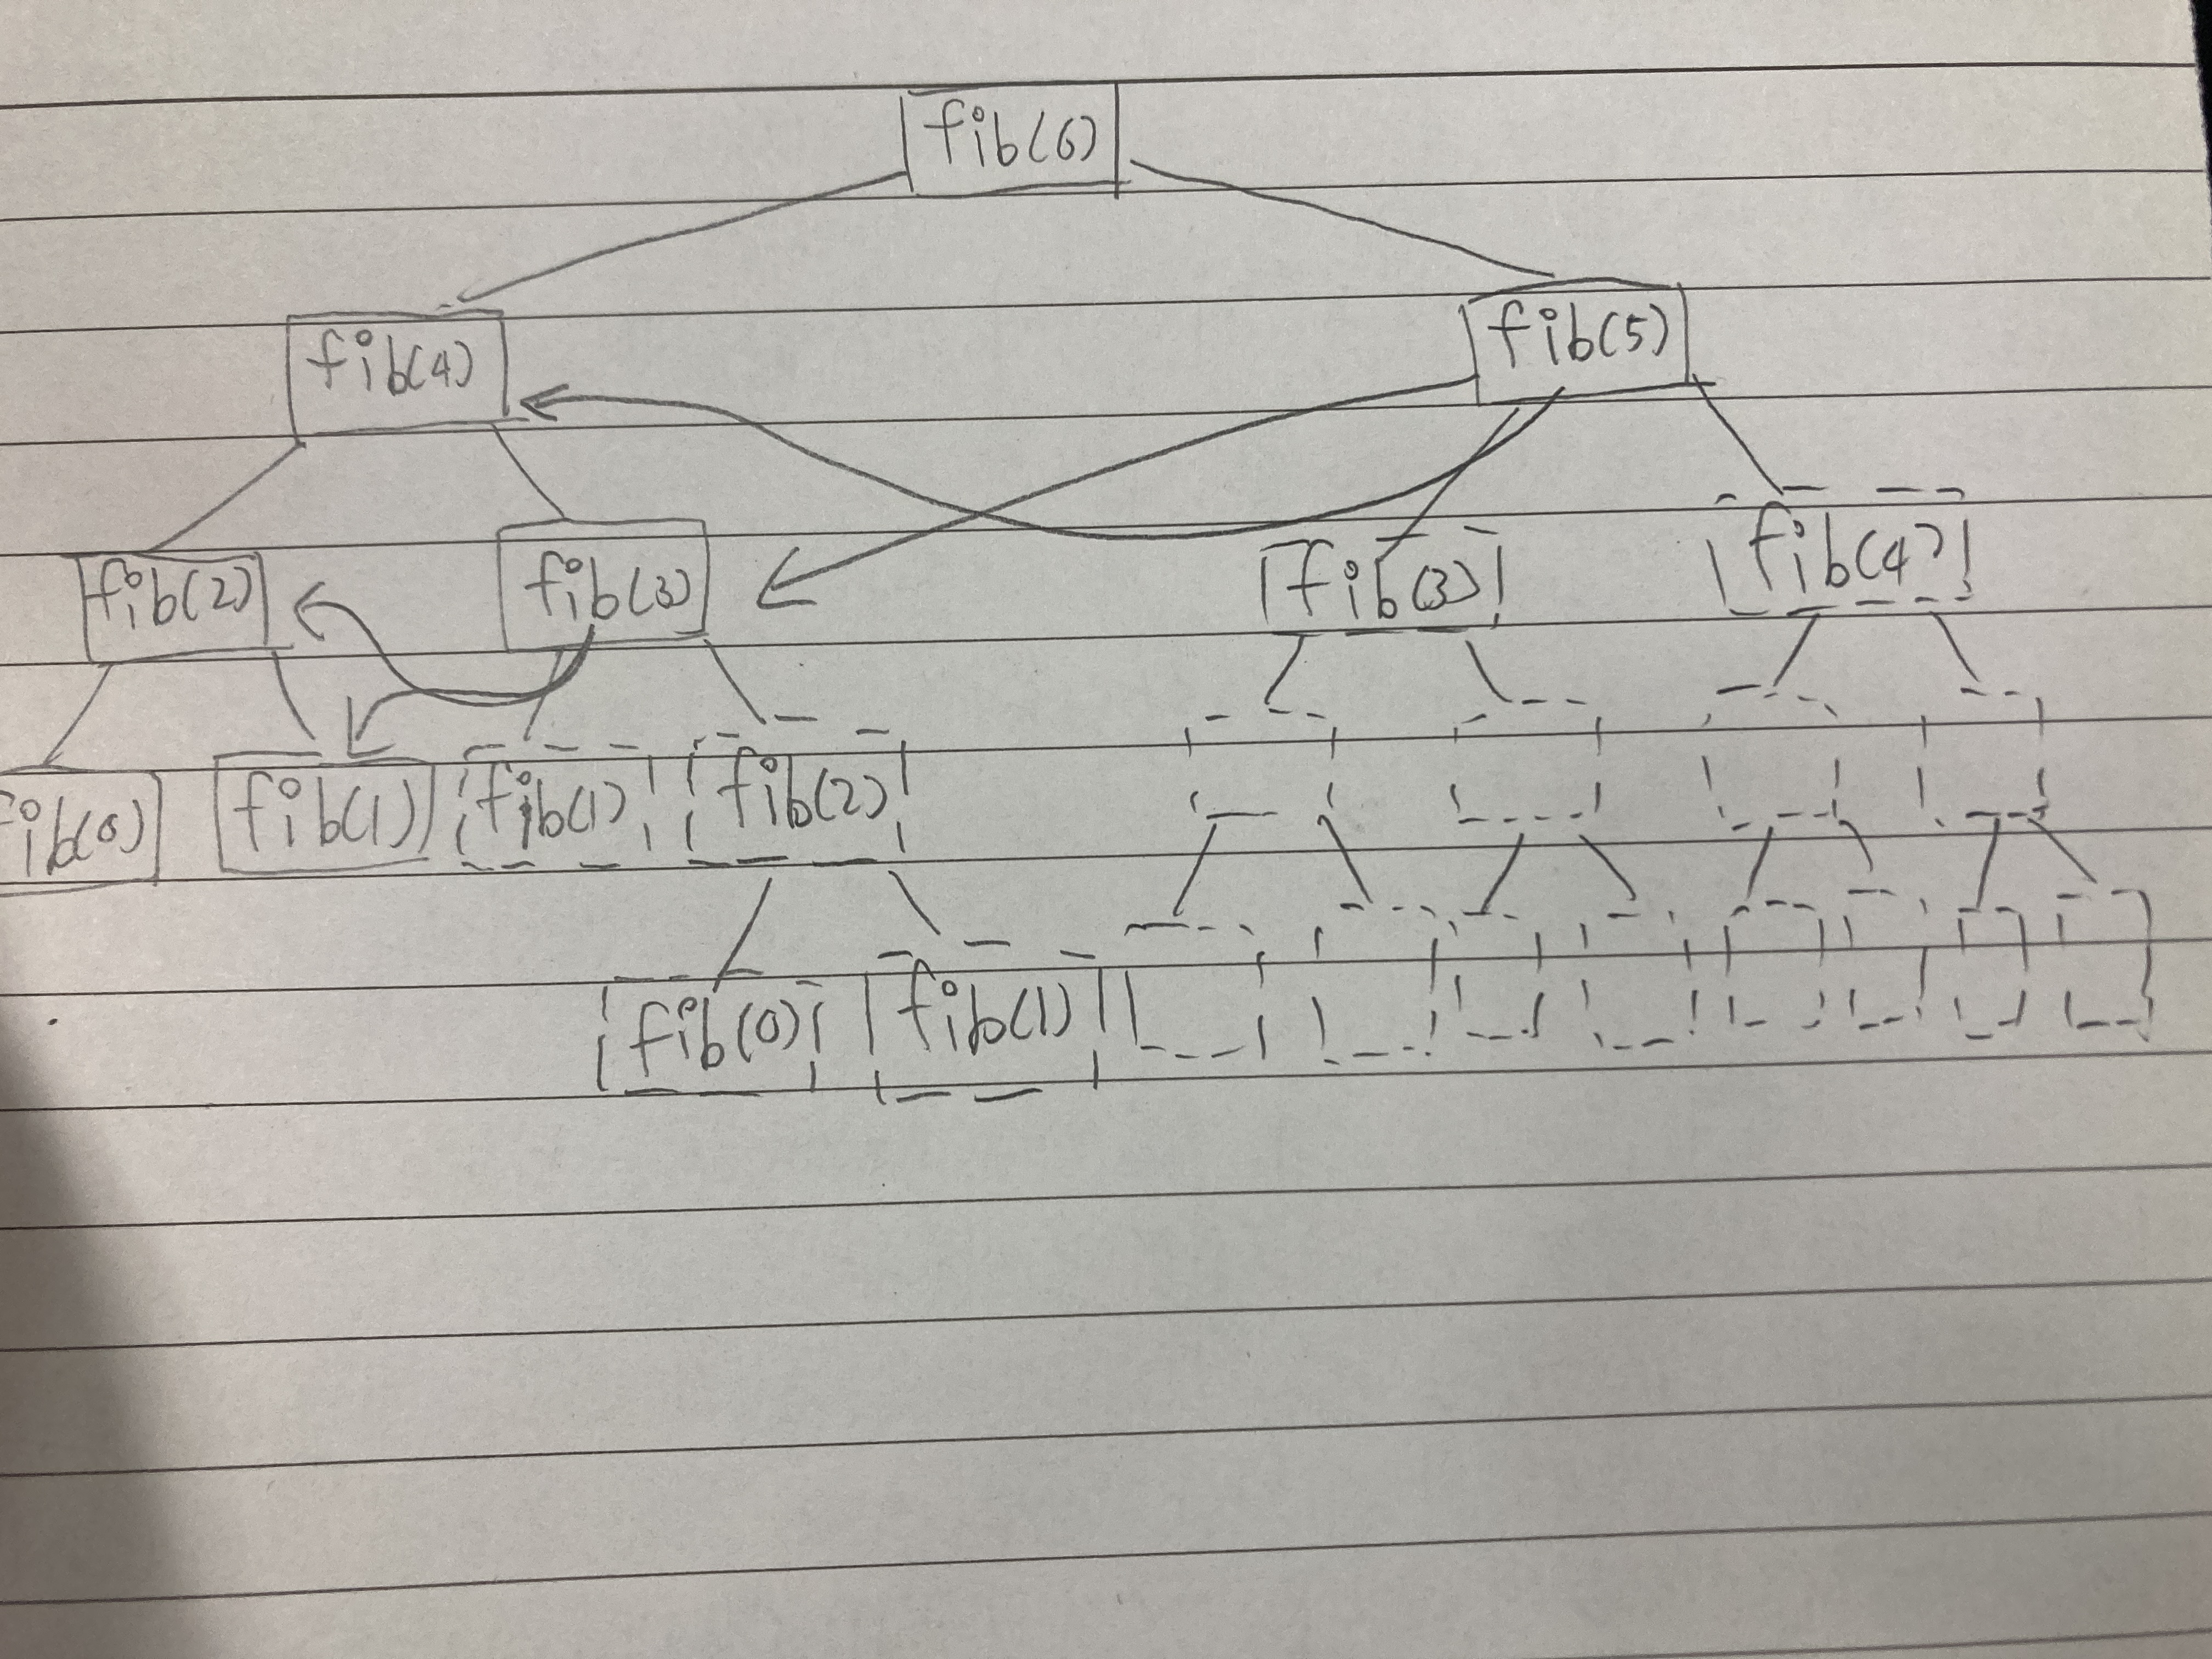 fib(6)
fib(4) fib(5)
fib(2) fib(3) fib(3) fib(4)
fib(0) fib(1) fib(1) fib(2)
fib(0) fib(1)